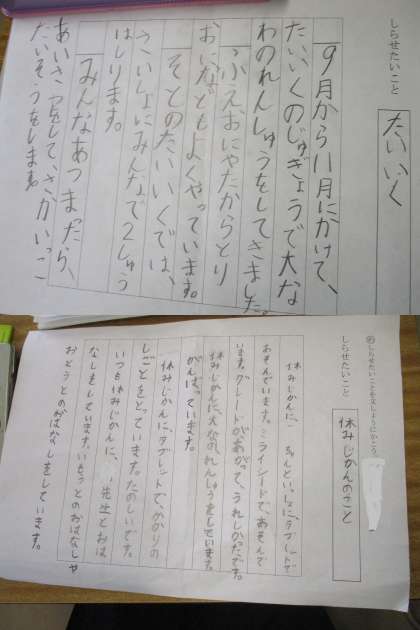 しらせたいこと
たいいく
9月から11月にかけて、
たいいくのじゅぎょうで大な
わのれんしゅうをしてきました。
ふえおにやたからとり
おになどもよくやっています。
そとのたいいくでは、
さいしょにみんなで2しゅう
はしります。
みんなあつまったら、
あいさつをして、さかいっこ
たいそうをします。
しらせたいことを文しょうにかこう。
しらせたいこと
休みじかんのこと
休みじかんに、
ちゃんといっしょに、タブレットで
あそんでいます。ミライシードで、あそんで
います。グレードがあがって、うれしかったです。
休みじかんに、大なわのれんしゅうをしています。
がんばっています。
休みじかんに、タブレットで、かかりの
しごとをとっています。たのしいです。
いつも休みじかんに、
先生とおは
なしをしています。いもうとのおはなしや
おとうとのおはなしをしています。